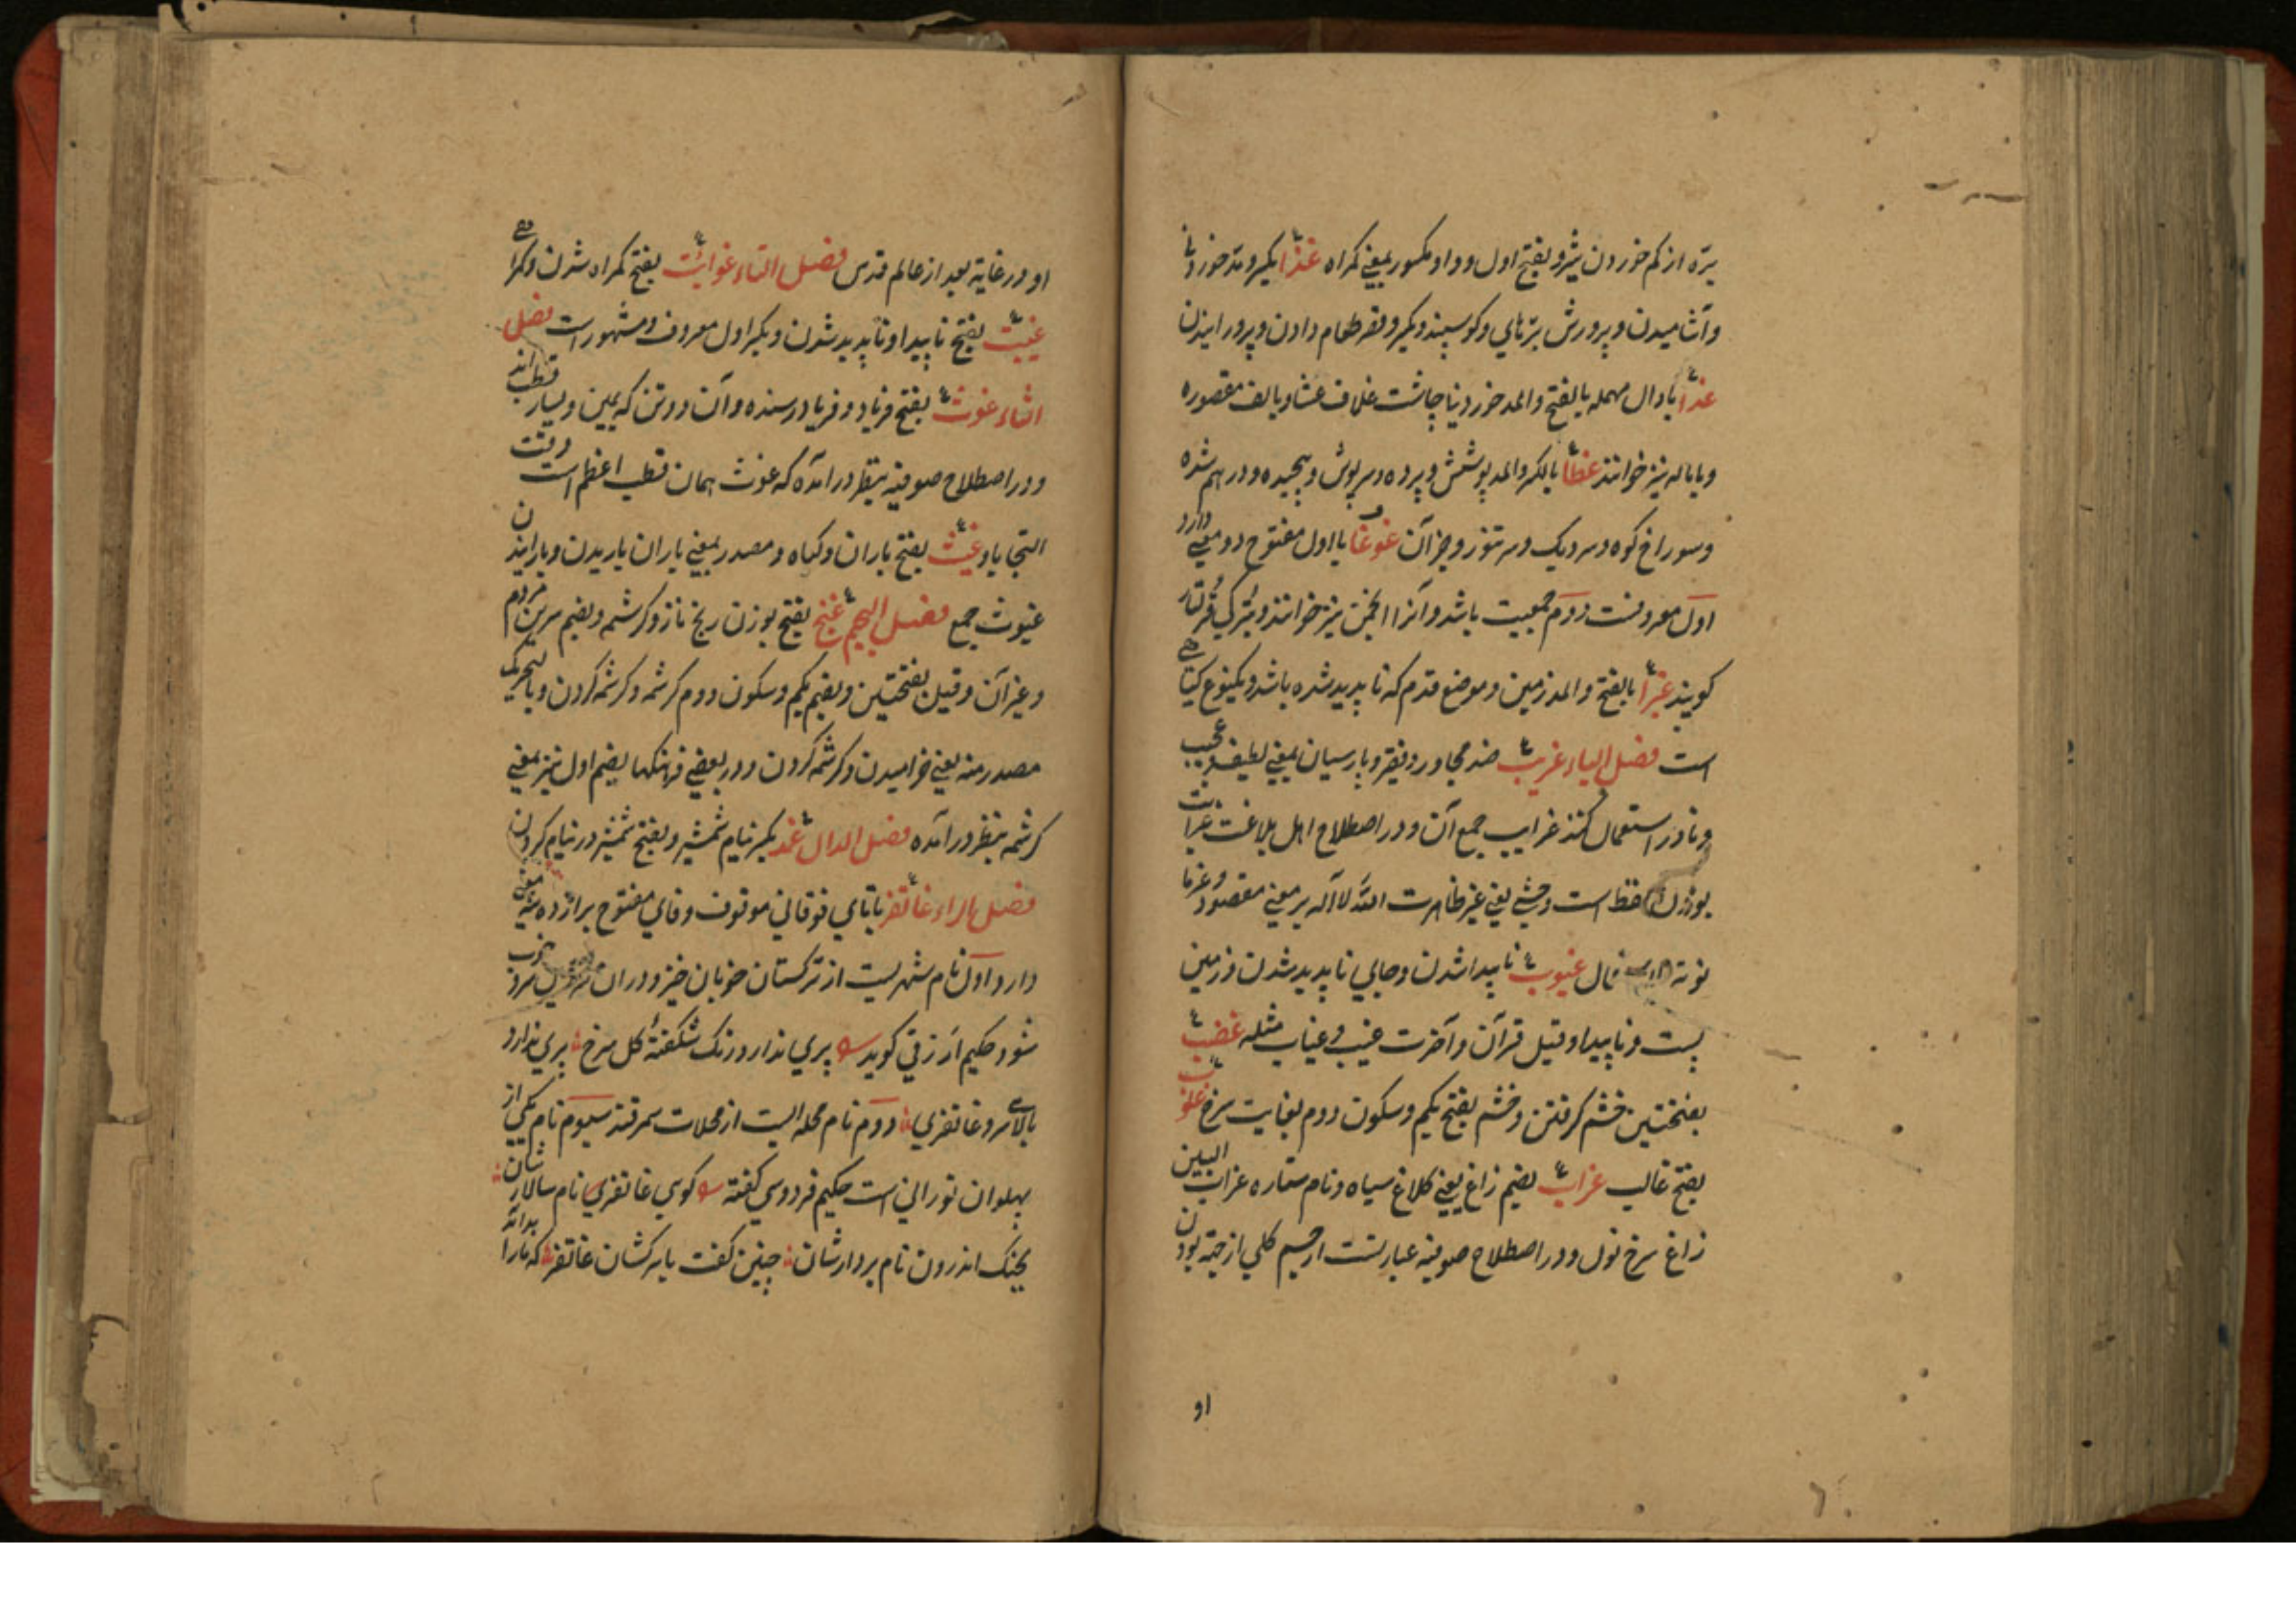 بره از کم خوردن شیر و بفتح اول و واو مکسور بمعنی کمراه غذاء بکسر و مد خوردنی
و آشامیدن و پرورش برنای و کوسپند و بکسر و قصر طعام دادن و پرورانیدن
غداء با دال مهمله بالفتح والمد خوردنی چاشت خلاف عشا و بالف مقصوره
و بااماله نیز خوانند غطاء بالکسر والمد پوشش و پرده و سرپوش و پیچیده و درهم شده
و سوراخ کوه و سر دیک و سر تنور و جز آن غوغا با اول مفتوح دو معنی دارد
اول معروفست دوم جمعیت باشد و آنرا انجمن نیز خوانند و بترکی
کویند غبراء بالفتح والمد زمین و موضع قدم که ناپدید شده باشد و یکنوع کیاهی
است فصل الباء غریب ضد مجاور و فقیر و پارسیان بمعنی لطیف و عجیب
و نادر استعمال کنند غرایب جمع آن و در اصطلاح اهل بلاغت غرابت
بودن لفظ است وحشی یعنی غیر ظاهرت الدلالة بر معنی مقصود و غیر ما
نوسة الاستعمال غیوب ناپیدا شدن و جایی ناپدید شدن و زمین
پست و ناپیدا و قیل قرآن و آخرت غیب و غیاب مثله غضب
بفتحتین خشم کرفتن و خشم بفتح یکم و سکون دوم بغایت سرخ
بفتح غالب غراب بضم زاغ یعنی کلاغ سیاه و نام ستاره غراب البین
زاغ سرخ نول و در اصطلاح صوفیه عبارتست از جسم کلی از جهة بودن
او
او در غایة بعد از عالم قدس فصل التاء غوایت بفتح کمراه شدن و کمراهی
غیبت بفتح ناپیدا و ناپدید شدن و بکسر اول معروف و مشهور است فصل
الثاء غوث بفتح فریاد و فریاد رسنده و آن دو تن که یمین و یسار قطب اند
و در اصطلاح صوفیه بنظر در آمده که غوث همان قطب اعظم است وقت
التجا باو غیث بفتح باران و کیاه و مصدر بمعنی باران باریدن و بارانیدن
غیوث جمع فصل الجیم غنج بفتح بوزن رنج ناز و کرشمه و بضم سرین مردم
و غیر آن و قیل بفتحتین و بضم یکم و سکون دوم کرشمه و کرشمه کردن و بالتحریک
مصدر منه یعنی خرامیدن و کرشمه کردن و در بعضی فرهنکها بضم اول نیز بمعنی
کرشمه بنظر در آمده فصل الدال غمد بکسر نیام شمشیر و بفتح شمشیر در نیام کردن
فصل الراء غاتفر باتای فوقانی موقوف و فای مفتوح برازده سه معنی
دارد اول نام شهریست از ترکستان خوبان خیز و در ان سرو خوب
شود حکیم ازرقی کوید پری ندارد رنک شکفته کل سرخ پری ندارد
بالای سرو غاتفری دوم نام محله ایست از محلات سمرقند سیوم نام یکی از
پهلوان تورانی است حکیم فردوسی کفته کوی غاتفری نام سالار شان
بجنک اندرون نام بردار شان چنین کفت با سرکشان غاتفر که ما را بدانکه